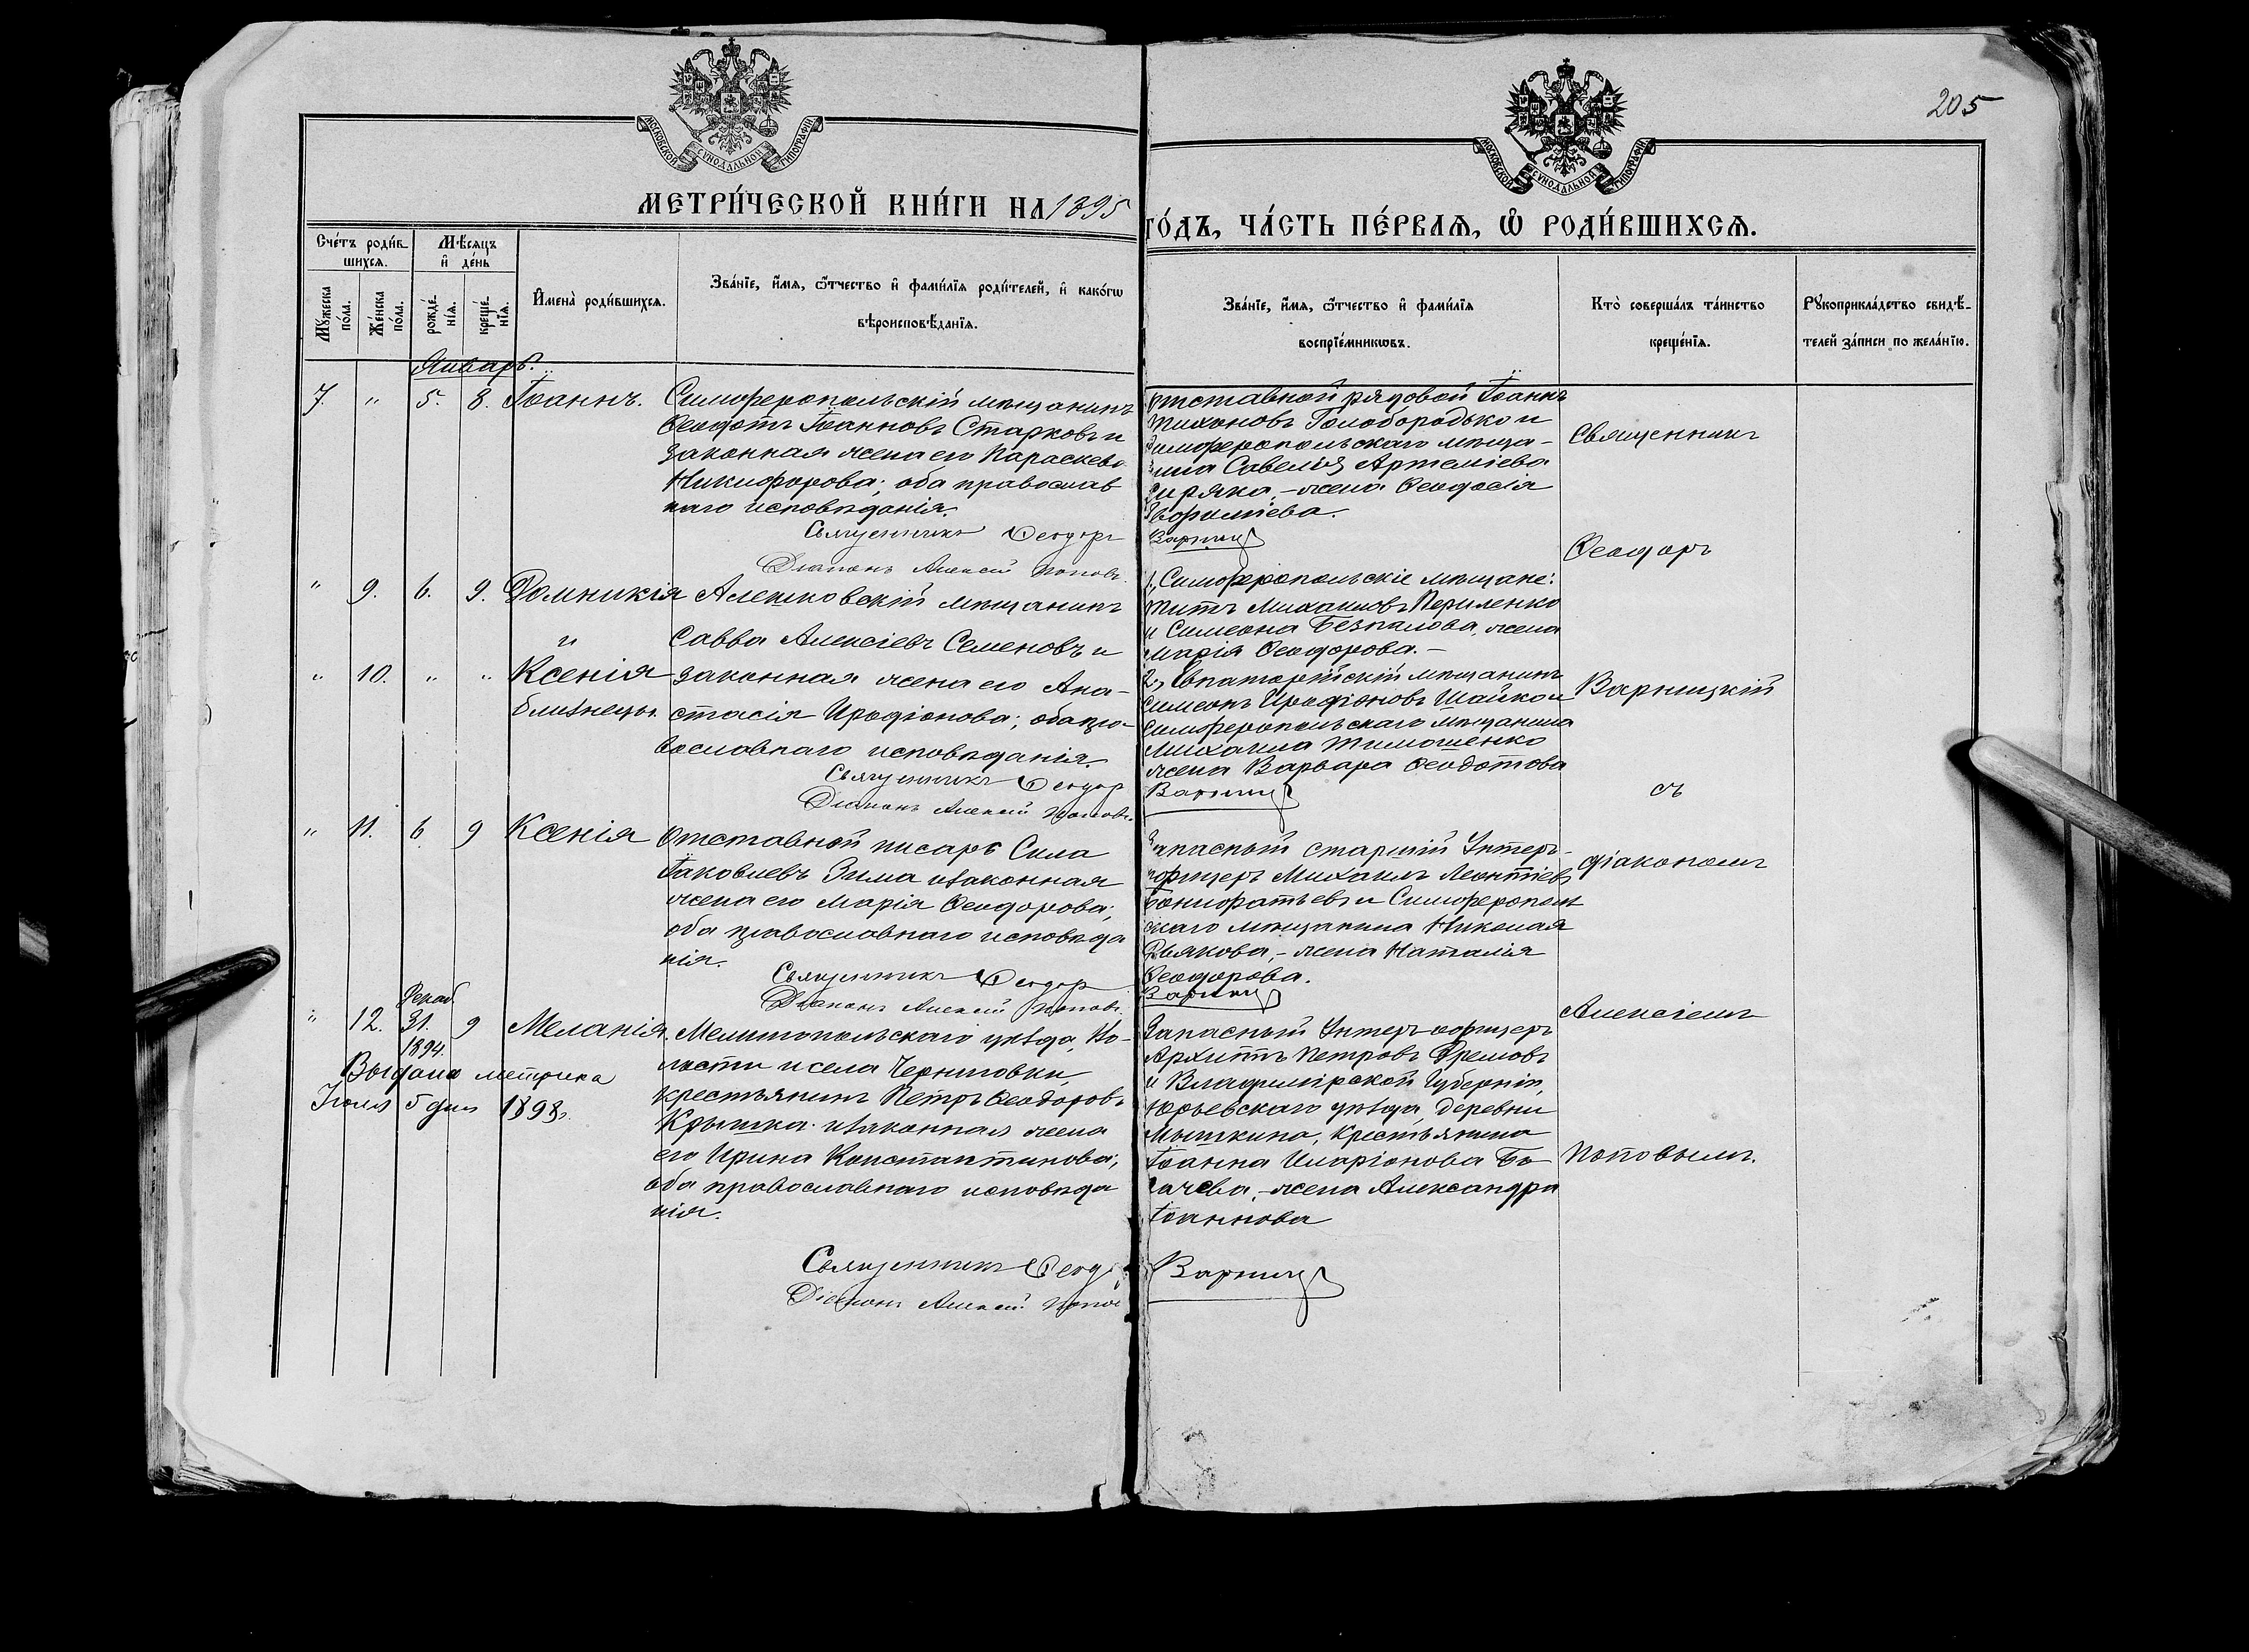 205
МОСКОВСКОЙ СѴНОДАЛЬНОЙ ТИПОГРАФІИ
МОСКОВСКОЙ СѴНОДАЛЬНОЙ ТИПОГРАФІИ
МЕТРИ́ЧЕСКОЙ КНИ́ГИ НА 1895 ГО́ДЪ, ЧА́СТЬ ПЕ́РВАѦ, Ѡ РОДИ́ВШИХСѦ.
Сче́тъ роди́в-
шихсѧ.
Мꙋ́жеска
по́ла.
Же́нска
по́ла.
Мѣ́сѧцъ
и҆ де́нь
рожде́-
нїѧ.
креще́-
нїѧ.
И҆мена̀ роди́вшихсѧ.
Зва́нїе, и҆́мѧ, ѻ҆́тчество и҆ фами́лїѧ роди́телей, и҆ како́гѡ
вѣроисповѣ́данїѧ.
Зва́нїе, и҆́мѧ, ѻ҆́тчество и҆ фами́лїѧ
воспрїе́мникѡвъ.
Кто̀ соверша́лъ та́инство
креще́нїѧ.
Рꙋкоприкла́дство свидѣ́-
телей за́писи по жела́нїю.
Январь.
7. " 5. 8. Іоаннъ.
Симферопольскій мѣщанинъ
Ѳеодотъ Іоанновъ Старковъ и
законная жена его Параскева
Никифорова; оба православ
наго исповѣданія.
Священникъ Ѳеодоръ
Діаконъ Алексій Поповъ.
Отставной рядовой Іоаннъ
Тихоновъ Голобородько и
Симферопольскаго мѣща-
нина Савелія Артеміева
жена Ѳеодосія
Варниц
" 9. 6. 9. Домникія
и
" 10. " " Ксенія
близнецы.
Алешковскій мѣщанинъ
Савва Алексіевъ Семеновъ и
законная жена его Ана-
стасія Иродіонова; оба пра-
вославнаго исповѣданія.
Священникъ Ѳеодор
Діаконъ Алексій Поповъ.
1., Симферопольскіе мѣщане:
Титъ Михаиловъ Периленко
и Симеона Безпалова, жена
Марія Ѳеодорова. -
2., Евпаторійскій мѣщанинъ
Симеонъ Иродіоновъ Шайко и
Симферопольскаго мѣщанина
Михаила Тимошенко
жена Варвара Ѳеодотова
Варниц
" 11. 6 9 Ксенія
Отставной писарь Сила
Іаковлевъ Зима и законная
жена его Марія Ѳеодорова;
оба православнаго исповѣда
нія.
Священникъ Ѳеодор
Діаконъ Алексій Поповъ.
Запасный старшій Унтеръ-
офицеръ Михаилъ Леонтіев
Бонифатьевъ и Симферополь
скаго мѣщанина Николая
Дьякова, - жена Наталія
Ѳеодорова.
Варниц
" 12. Декаб 31. 1894. 9 Меланія.
Выдана метрика
Іюля 5 дня 1898г.
Мелитопольскаго уѣзда, Во-
лости и села Черниговки,
крестьянинъ Петръ Ѳеодоровъ
Крышка и законная жена
его Ирина Константинова;
оба православнаго исповѣда
нія.
Священникъ Ѳеод
Діаконъ Алексій Попов
Запасный Унтеръ-офицеръ
Петровъ
и Владимірской Губерніи,
Юрьевскаго уѣзда, деревни
Мышкина, крестьянина
Іоанна Иларіонова
жена Александра
Іоаннова
Варниц
Священникъ
Ѳеодоръ
Варницкій
съ
діакономъ
Алексіемъ
Поповымъ.